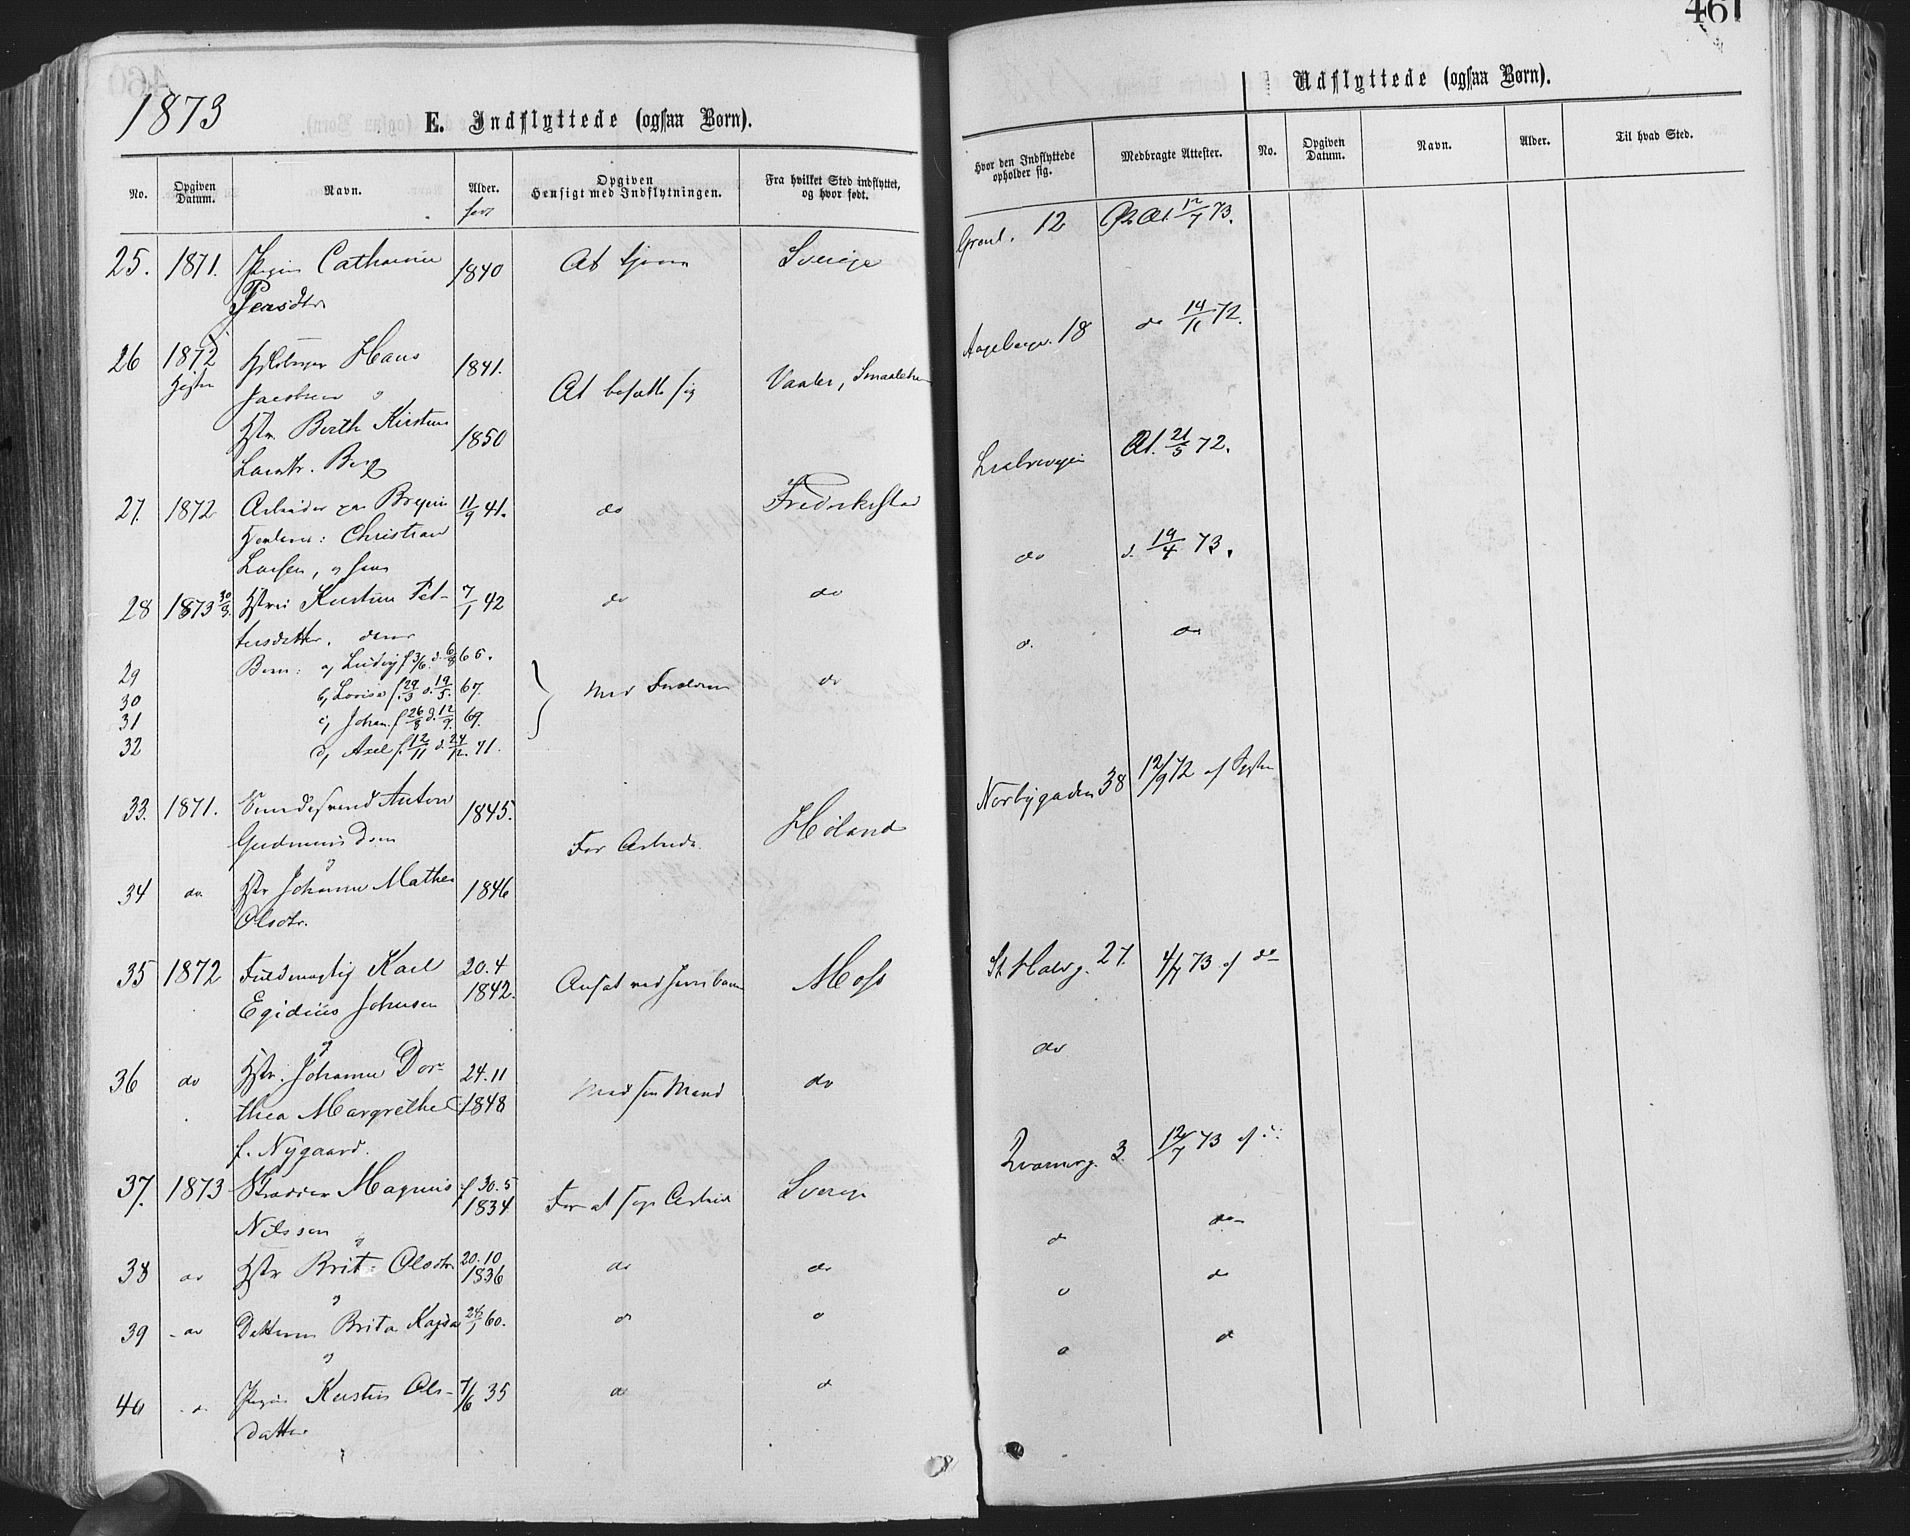 461
1873
E. Indflyttede (ogsaa Børn).
Udflyttede (ogsaa Børn).
No.
Opgiven Datum.
Navn.
Alder.
født
Opgiven
Hensigt med Indflytningen.
Fra hvilket Sted indflyttet,
og hvor født.
Hvor den Indflyttede
opholder sig.
Medbragte Attester.
No.
Opgiven
Datum.
Navn.
Alder.
Til hvad Sted.
25. 1871. Pigen Catharine 1840 At tjene Sverige Grønl. 12 12/7 73.
Persdtr
26 1872 Hans 1841. At bosætte sig Vaaler, Smaalehn Aagebergv. 18 do 14/11 72.
Høsten Jacobsen og
Hstr. Berth Kirstine 1850
Larsdtr. Berg
27. 1872 Arbeider paa Bryn 11/9 41. do Fredrikstad At. 21/5 72.
Christian
Larsen, og hans
28 1873 30/3. Hstru Kirstine Pet- 7/1 42 do do do d. 19/4 73.
tersdatter, deres
29 Børn: a, Ludvig f 3/6 d. 6/8 65. Med Forældrene do d. do
30 b, Lovise f. 29/3 d. 19/5. 67.
31 c, Johan. f 26/8 d. 12/9. 69.
32 d, Axel f. 12/11 d. 24/12. 71.
33. 1871. Anton 1845. For Arbeide. Høland Norbygaden 38 12/9 72 af
Gudmundsen
og
34 do. Hstr Johanne Mathea 1846
Olsdtr.
35 1872 Fuldmægtig Karl 20.4 1842. Ansat ved Jernbanen Moss St Halvg. 27. 4/7 73 af do
Egidius Johnsen
og
36 do Hstr. Johanne Dor- 24.11 1848 Med sin Mand do do
thea Margrethe
f. Nygaard.
37. 1873 Skrædder Magnus f 30.5 1834 For at søge Arbeide Sverige Qværnerg. 3. 12/7 73 af d:
Nilsson og
38 do Hstr Brita Olsdtr 20.10 1836 do do d do
og
39 - do Datteren Brita Kajsa 28/1 60. do o o d
og
40 - d. Pigen Kirstin Ols- 7/6 35 d d o d
datter